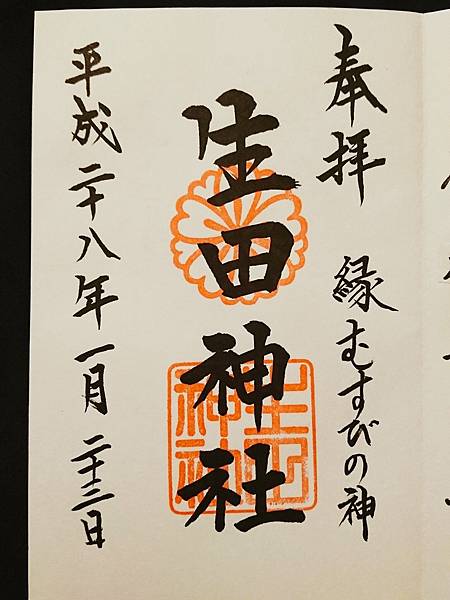 奉拝 縁むすびの神
生田神社
生田神社
平成二十八年一月二十三日